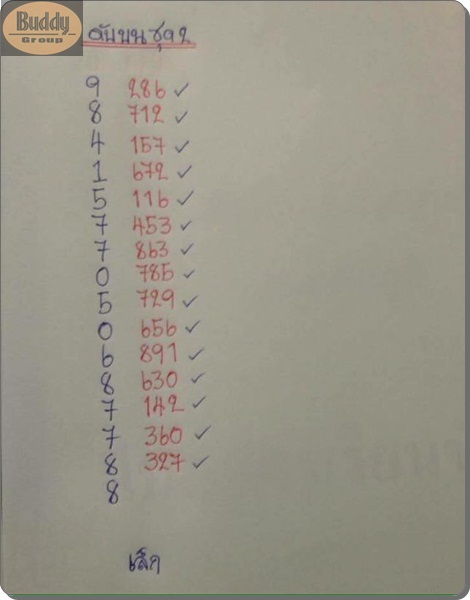 Buddy
Group
ดับบนชุด2
9 286 ✓
8 712 ✓
4 157 ✓
1 672 ✓
5 116 ✓
7 453 ✓
7 863 ✓
0 785 ✓
5 729 ✓
0 656 ✓
6 891 ✓
8 630 ✓
7 142 ✓
7 360 ✓
8 327 ✓
8
เล็ก